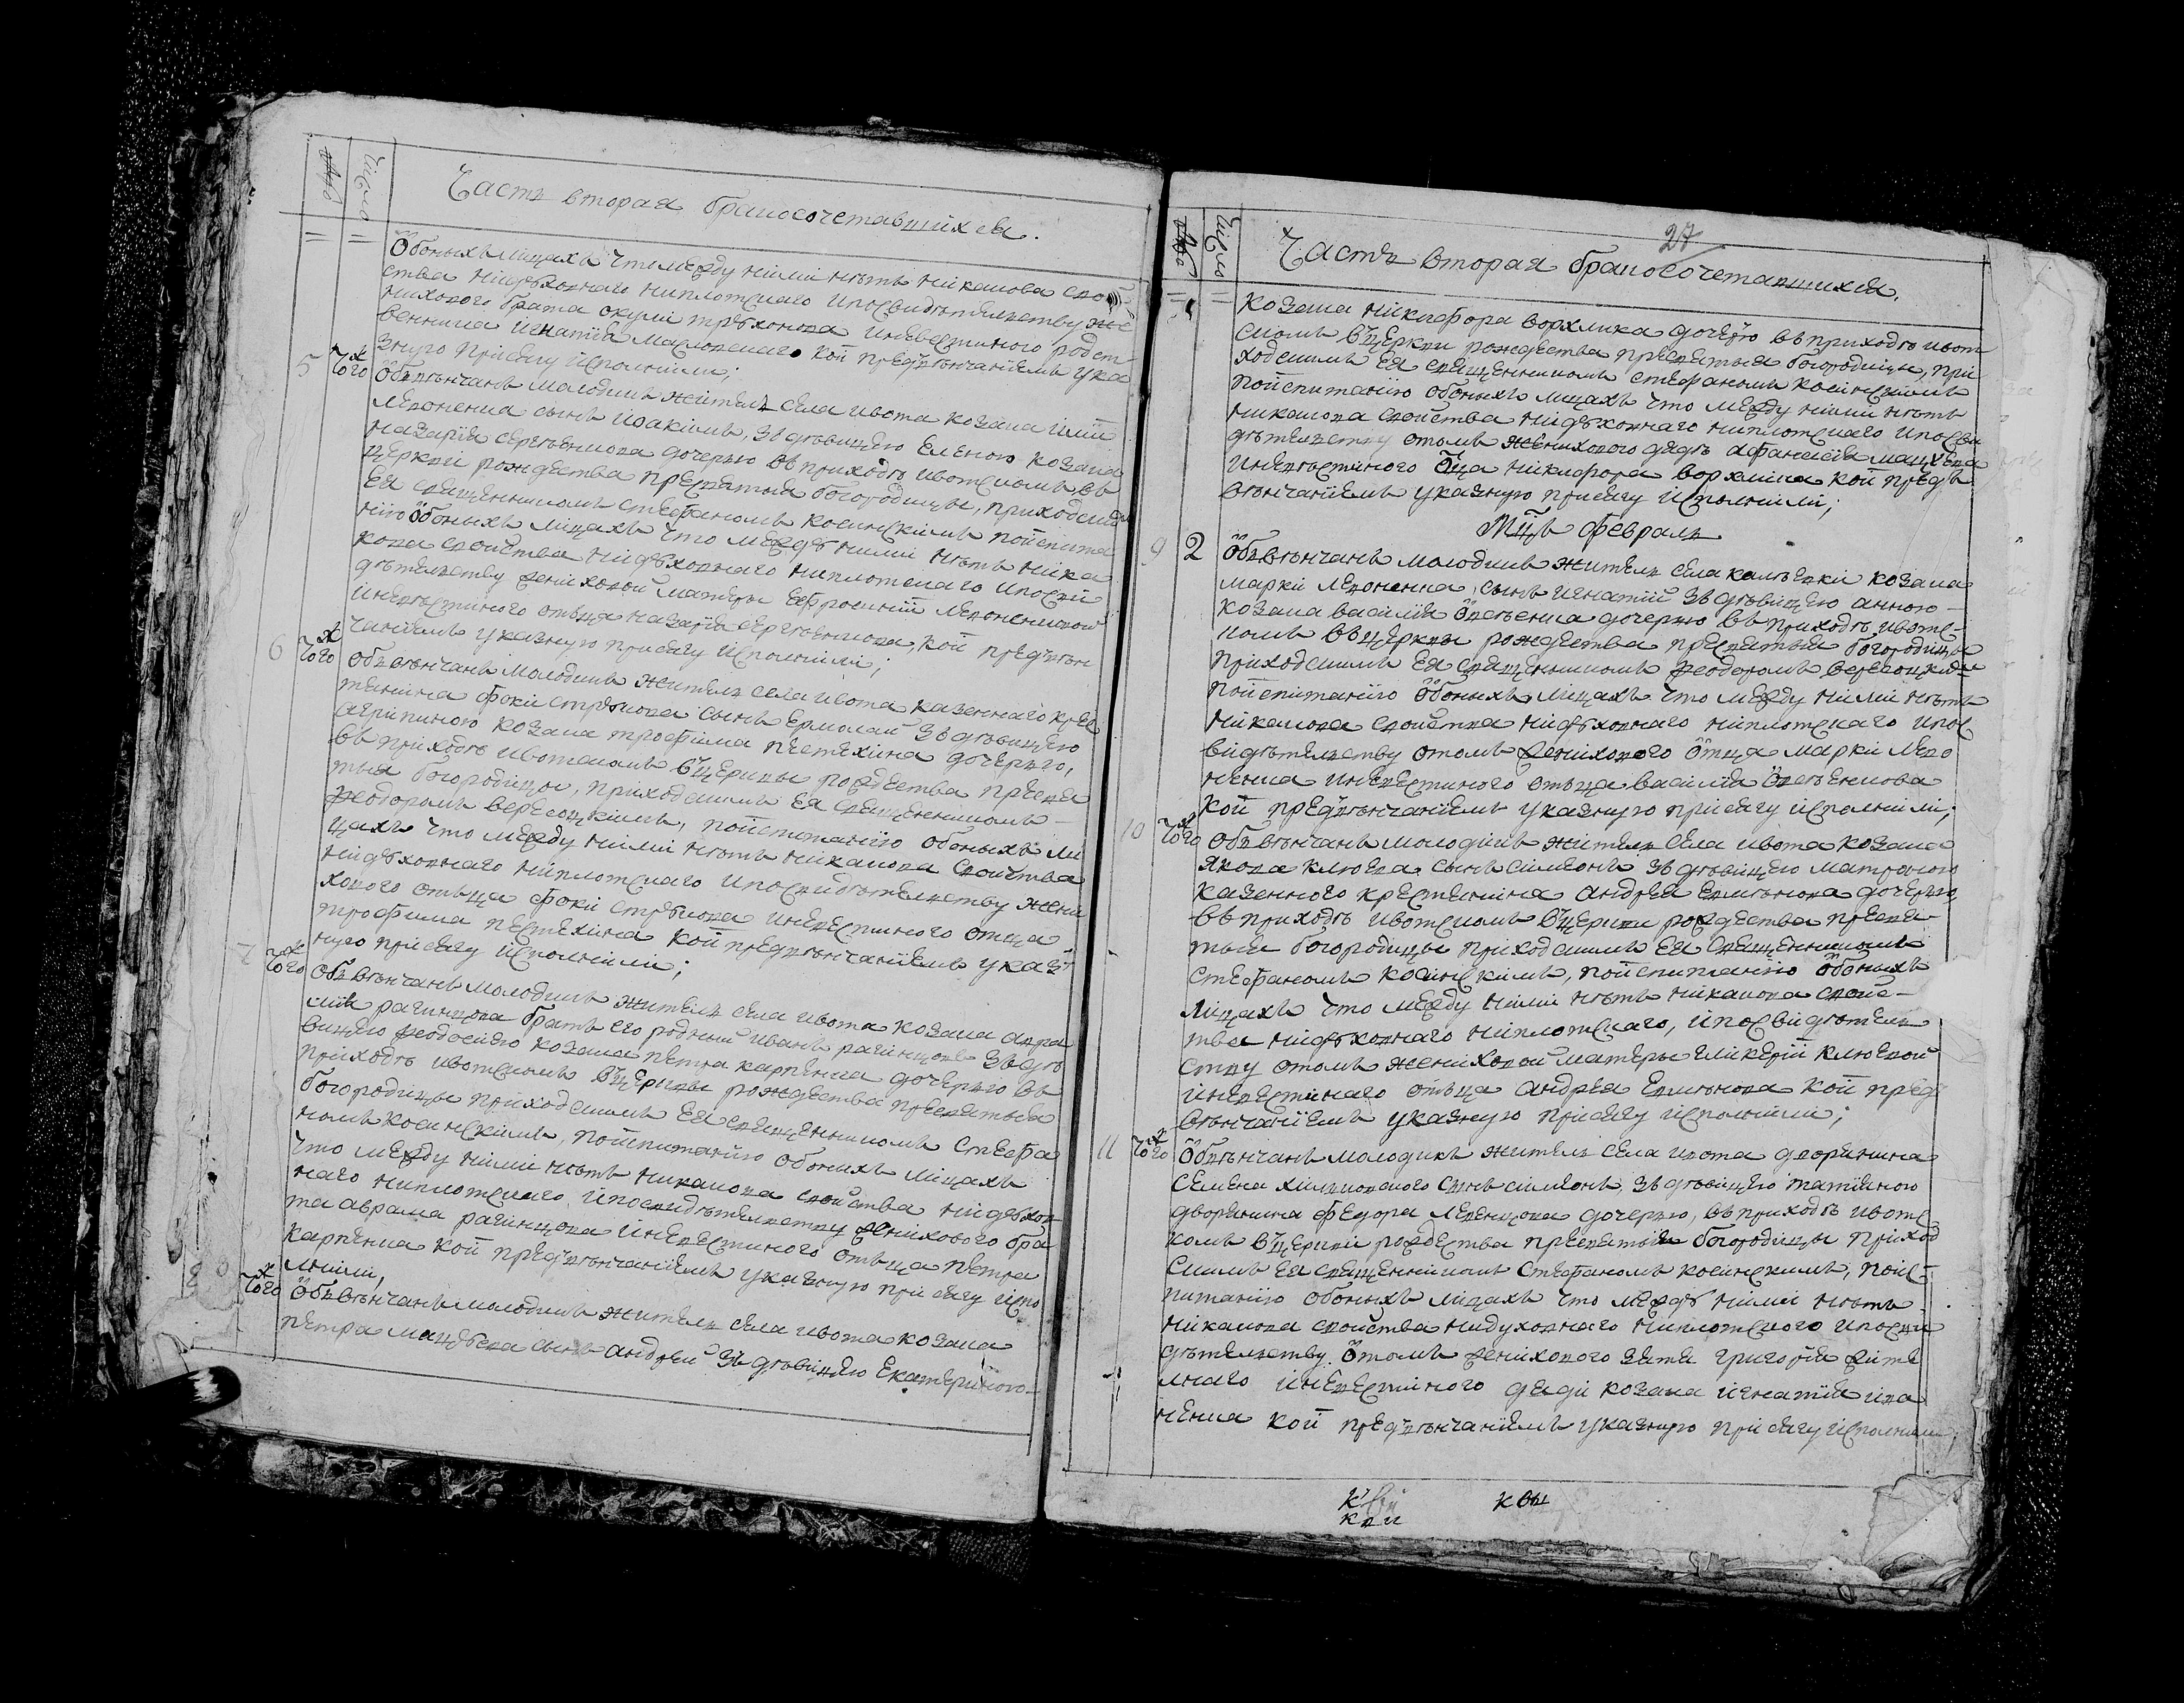 Число
Часть вторая бракосочетавшихся.
Обоныхъ лицахъ что между ними нѣтъ никакова свой
ства нидуховнаго ниплотскаго ипосвидѣтелству же
нихового брата невестиного родст
венника игнатия Масловскаго кой предвѣнчаниемъ ука
зную присягу исполнили;
5 тогож Обвѣнчанъ молодикъ житель села ивота козака
Леоненка сынъ иоакимъ, зъ дѣвицею Еленою козака
назария сергѣенкова дочерью въ приходѣ ивотскомъ въ
церкви рождества пресвятыя богородицы, приходским
Ея священникомъ стефаномъ косинскимъ поиспита
нию обоныхъ лицахъ что между ними нѣтъ ника
кова свойства нидуховнаго ниплотскаго ипосви
дѣтелству жениховой матери Ефросинии Леоненковой
иневѣстиного отъца назария сергѣенкова, кой предвѣн
чаниемъ указную присягу исполнили;
6 тогож Обвѣнчанъ молодикъ житель села ивота казеннаго крес
тянина фоки стрѣлкова сынъ Ермолай зъ дѣвицею
Агрипиною козака трофима пестехина дочерью,
въ приходѣ ивотскомъ въ церквы рождества пресвя
тыя богородицы, приходскимъ Ея священникомъ
феодоромъ вересоцкимъ, поиспитанию обоныхъ ли
цахъ что между ними нѣтъ никакова свойства
нидуховнаго ниплотскаго ипосвидѣтелству жени
хового отъца фоки стрѣлкова иневестиного отца
трофима пестехина кой предвѣнчаниемъ указ
ную присягу исполнили;
7 тогож Обвѣнчанъ молодикъ житель села ивота козака авра
мия рагинцова братъ его родный иванъ рагинцовъ зъ дѣ
вицею феодосиею козака петра карпенка дочерью въ
приходѣ ивотскомъ въ церквы рождества пресвятыя
богородицы приходскимъ Ея священникомъ стефа
номъ косинскимъ, поиспитанию обоныхъ лицахъ
что между ними нѣтъ никакова свойства нидухов
наго ниплотскаго ипосвидѣтелству женихового бра
та аврама рагинцова иневестиного отъца петра
карпенка кой предвѣнчаниемъ указную присягу испо
лнили,
8 тогож Обвѣнчанъ молодикъ житель села ивота козака
петра сынъ андрей зъ дѣвицею Екатериною
27
Число
Часть вторая бракосочетавшихся.
козака никифора ворхлика дочерю въ приходѣ ивот
скомъ въ церкви рождества пресвятыя богородицы, при
ходскимъ Ея священникомъ стефаномъ косинскимъ
поиспитанию обоныхъ лицахъ что между ними нѣтъ
никакова свойства нидуховнаго ниплотскаго ипосви
дѣтелству отомъ женихового дядѣ афанасия
иневѣстиного оца никифора ворхлика кой предъ
вѣнчаниемъ указную присягу исполнили;
Мцъ февраль
9 2 Обвѣнчанъ молодикъ житель села козака
марки Леоненка, сынъ игнатий зъ дѣвицею анною
козака василия дочерью въ приходѣ ивотс
комъ въ церквы рождества пресвятыя богородицы
приходскимъ Ея священникомъ феодоромъ вересоцким
поиспитанию обоныхъ лицахъ что между ними нѣтъ
никакова свойства нидуховнаго ниплотскаго ипос
видѣтелству отомъ женихового отца марки Лео
ненка иневестиного отъца василия
кой предвѣнчаниемъ указную присягу исполнили;
10 тогож Обвѣнчанъ молодикъ житель села ивота козака
якова клюева сынъ симеонъ зъ дѣвицею матроною
казенного крестянина андрея дочерью,
въ приходѣ ивотскомъ въ церкви рождества пресвя
тыя богородицы приходскимъ Ея священникомъ
стефаномъ косинскимъ, поиспитанию обоныхъ
лицахъ что между ними нѣтъ никакова свойс
тва нидуховнаго ниплотскаго, ипосвидѣтель
ству отомъ жениховой матеры гликерии клюевой
иневестинаго отъца андрея кой пред
вѣнчаниемъ указную присягу исполнили;
11 тогож Обвѣнчанъ молодикъ житель села ивота дворянина
семена сынъ симеонъ, зъ дѣвицею татияною
дворянина федора дочерью, въ приходѣ ивотс
комъ въ церкви рождества пресвятыя богородицы приход
скимъ Ея священникомъ стефаномъ косинскимъ, поис
питанию обоныхъ лицахъ что между ними нѣтъ
никакова свойства нидуховнаго ниплотского ипосви
дѣтелству отомъ женихового зятя григория
иневестиного дяди козака игнатия ива
ненка кой предвѣнчаниемъ указную присягу исполнили,